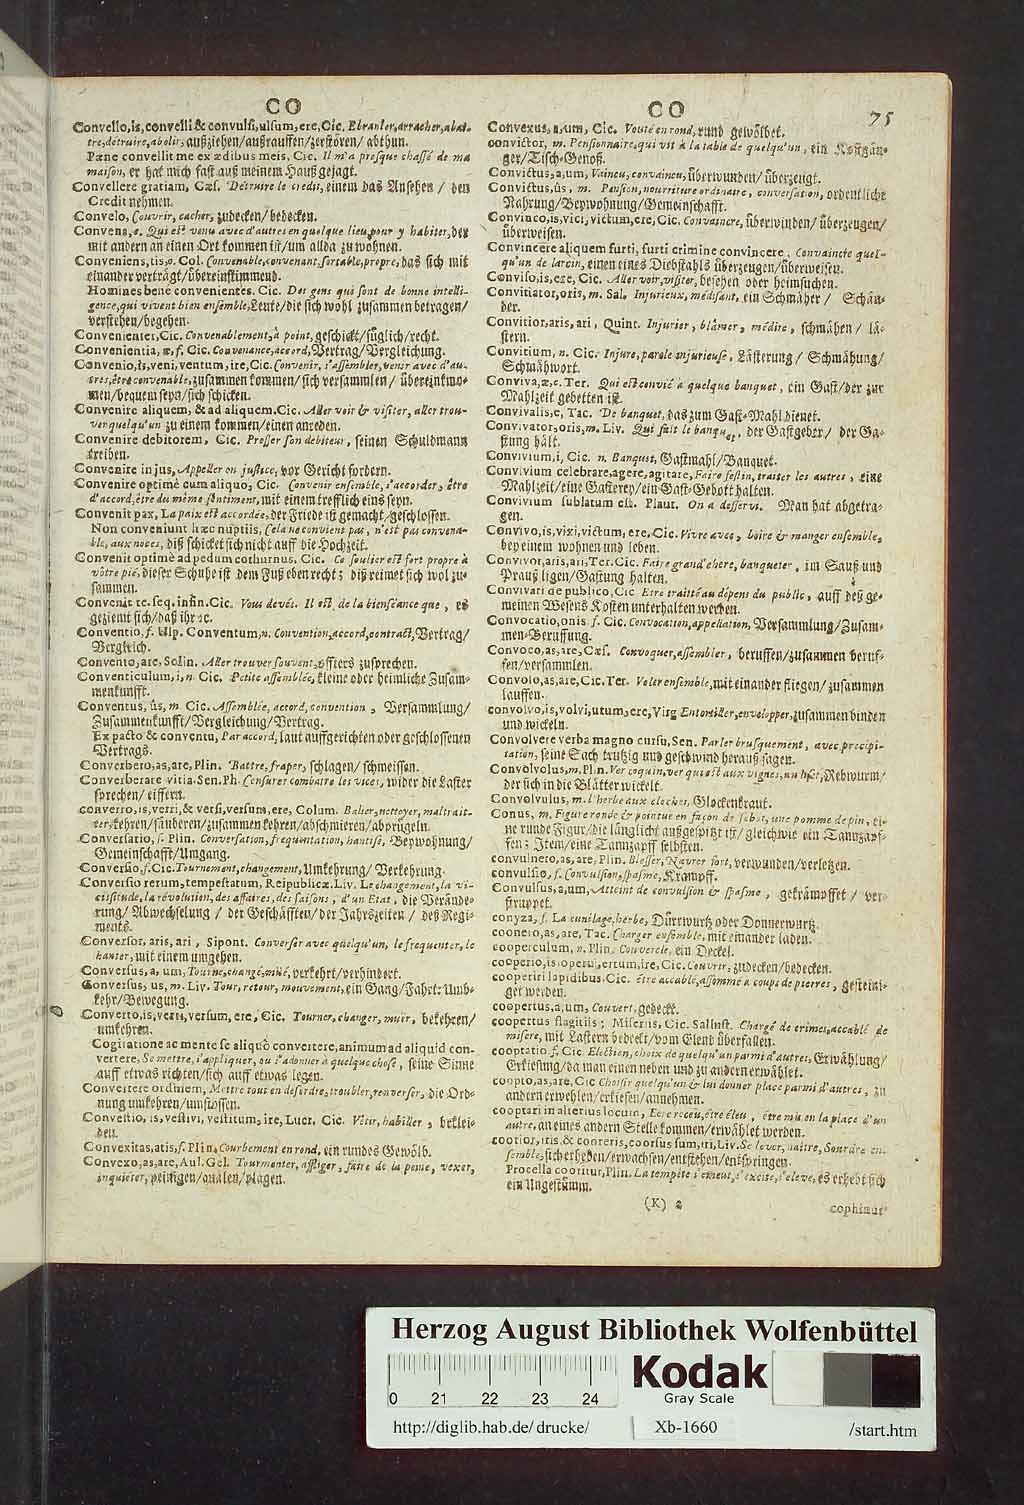 CO
Convello,is,convelli & convulsi,ulsum,ere,Cic. Ebranler,arracher,abat-
tre,detruire,abolir, außziehen/außrauffen/zerstören/ abthun.
Pæne convellit me ex ædibus meis, Cic. Il m'a presque chassé de ma
maison, er hat mich fast auß meinem Hauß gejagt.
Convellere gratiam, Cæs. Détruire le credit, einem das Ansehen / den
Credit nehmen.
Convelo, Couvrir, cacher, zudecken/bedecken.
Convena, e. Qui est venu avec d'autres en quelque lieu pour y habiter, der
mit andern an einen Ort kommen ist/um allda zu wohnen.
Conveniens,tis,o. Col. Convenable,convenant,sortable,propre, das sich mit
einander verträgt/übereinstimmend.
Homines bene convenientes. Cic. Des gens qui sont de bonne intelli-
gence,qui vivent bien ensemble, Leute/die sich wohl zusammen betragen/
verstehen/begehen.
Convenienter, Cic. Convenablement, à point, geschickt/füglich/recht.
Convenientia, æ, f. Cic. Convenance,accord, Vertrag/Vergleichung.
Convenio,is,veni,ventum,ire,Cic. Convenir, s'assembler,venir avec d'au-
tres,être convenable, zusammen kommen/ sich versammlen / übereinkom-
men/bequem seyn/sich schicken.
Convenire aliquem, & ad aliquem. Cic. Aller voir & visiter, aller trou-
ver quelqu'un zu einem kommen/einen anreden.
Convenire debitorem, Cic. Presser son debiteur, seinen Schuldmann
treiben.
Convenire in jus, Appeller en justice, vor Gericht fordern.
Convenire optimè cum aliquo, Cic. Convenir ensemble, s'accorder, être
d'accord,être du même sentiment, mit einem trefflich eins seyn.
Convenit pax, La paix est accordée, der Friede ist gemacht/geschlossen.
Non conveniunt hæc nuptiis, Cela ne convient pas, n'est pas convena-
ble, aux noces, diß schicket sich nicht auff die Hochzeit.
Convenit optimè ad pedum cothurnus, Cic. Ce soulier est fort propre à
vôtre pié, dieser Schuhe ist dem Fuß eben recht; diß reimet sich wol zu-
sammen.
Convenit te. seq. infin. Cic. Vous devés. Il est de la bienséance que, es
geziemt sich/daß ihr ꝛc.
Conventio, f. Ulp. Conventum, n. Convention,accord,contract, Vertrag/
Vergleich.
Convento, are, Solin. Aller trouver souvent, öffters zusprechen.
Conventiculum, i, n. Cic. Petite assemblée, kleine oder heimliche Zusam-
menkunfft.
Conventus, ûs, m. Cic. Assemblée, accord, convention, Versammlung/
Zusammenkunfft/Vergleichung/Vertrag.
Ex pacto & conventu, Par accord, laut auffgerichten oder geschlossenen
Vertrags.
Converbero,as,are, Plin. Battre, fraper, schlagen/schmeissen.
Converberare vitia. Sen. Ph. Censurer combatre les vices, wider die Laster
sprechen/eiffern.
converro,is,verri, & versi,versum,ere, Colum. Balier,nettoyer,maltrait-
ter, kehren/säuberen/zusammen kehren/abschmieren/abprügeln.
Conversatio, f. Plin. Conversation, frequentation, hantise, Beywohnung/
Gemeinschafft/Umgang.
Conversio, f. Cic. Tournement,changement, Umkehrung/Verkehrung.
Conversio rerum, tempestatum, Reipublicæ. Liv. Le changement, la vi-
cissitude, la révolution, des affaires, des saisons, d'un Etat, die Verände-
rung/ Abwechselung / der Geschäfften/ der Jahrszeiten / deß Regi-
ments.
Conversor, aris, ari, Sipont. Converser avec quelqu'un, le frequenter, le
hanter, mit einem umgehen.
Conversus, a, um, Tourné,changé,mué, verkehrt/verhindert.
Conversus, us, m. Liv. Tour,retour, mouvement, ein Gang/Fahrt: Umb-
kehr/Bewegung.
Converto,is,verti,versum,ere, Cic. Tourner, changer, muer, bekehren/
umkehren.
Cogitatione ac mente se aliquò convertere, animum ad aliquid con-
vertere, Se mettre, s'appliquer, ou s'adonner a quelque chose, seine Sinne
auff etwas richten/sich auff etwas legen.
Convertere ordinem, Mettre tout en desordre,troubler,renverser, die Ord-
nung umkehren/umstossen.
Convestio,is,vestivi, vestitum, ire, Lucr. Cic. Vêtir, habiller, beklei-
den.
Convexitas,atis, f. Plin. Courbement en rond, ein rundes Gewölb.
Convexo,as,are, Aul. Gel. Tourmenter, affliger, faire de la peine, vexer,
inquieter, peinigen/quälen/plagen.
CO
75
Convexus,a,um, Cic. Vouté en rond, rund gewölbet.
convictor, m. Pensionnaire,qui vit à la table de quelqu'un, ein Kostgän-
ger/Tisch-Genoß.
Convictus,a,um, Vaincu, convaincu, überwunden/ überzeugt.
Convictus,ûs, m. Pension,nourriture ordinaire, conversation, ordentliche
Nahrung/Beywohnung/Gemeinschafft.
Convinco,is,vici,victum,ere,Cic. Convaincre, überwinden/ überzeugen/
überweisen.
Convincere aliquem furti, furti crimine convincere, Convaincre quel-
qu'un de larcin, einen eines Diebstahls überzeugen/überweisen.
Conviso,is,ere, Cic. Aller voir,visiter, besehen oder heimsuchen.
Convitiator,oris, m. Sal. Injurieux, médisant, ein Schmäher / Schän-
der.
Convitior,aris,ari, Quint. Injurier, blâmer, médire, schmähen / lä-
stern.
Convitium, n. Cic. Injure, parole injurieuse, Lästerung / Schmähung/
Schmähwort.
Conviva,æ,c. Ter. Qui est convié a quelque banquet, ein Gast/der zur
Mahlzeit gebetten ist.
Convivalis,e, Tac. De banquet, das zum Gast-Mahl dienet.
Convivator,oris,m. Liv. Qui fait le banquet, der Gastgeber/ der Ga-
stung hält.
Convivium,i, Cic. n. Banquet, Gastmahl/Banquet.
Convivium celebrare,agere,agitare, Faire festin, traiter les autres, eine
Mahlzeit/eine Gasterey/ein Gast-Gebott halten.
Convivium sublatum est. Plaut. On a desservi. Man hat abgetra-
gen.
Convivo,is,vixi,victum, ere, Cic. Vivre avec, boire & manger ensemble,
bey einem wohnen und leben.
Convivor,aris,ari,Ter.Cic. Faire grand'chere, banqueter, im Sauß und
Prauß ligen/Gastung halten.
Convivari de publico, Cic. Etre traitté au dépens du public, auff deß ge-
meinen Wesens Kosten unterhalten werden.
Convocatio,onis f. Cic. Convocation,appellation, Versammlung/Zusam-
men-Beruffung.
Convoco,as,are,Cæs. Convoquer,assembler, beruffen/zusammen beruf-
fen/versammlen.
Convolo,as,are,Cic.Ter. Voler ensemble, mit einander fliegen/ zusammen
lauffen.
convolvo,is,volvi,utum,ere, Virg Entortiller,envelopper, zusammen binden
und wickeln.
Convolvere verba magno cursu, Sen. Parler brusquement, avec precipi-
tation, seine Sach trutzig und geschwind herauß sagen.
Convolvolus,m.Plin. Ver coquin,ver qui est aux vignes,un liset, Rebwurm/
der sich in die Blätter wickelt.
Convolvulus, m. l'herbe aux cloches, Glockenkraut.
Conus, m. Figure ronde & pointue en façon de sabot, une pomme de pin, ei-
ne runde Figur/die länglicht außgespitzt ist/gleichwie ein Tannzapf-
fen; Item/eine Tannzapff selbsten.
convulnero,as,are, Plin. Blesser, Navrer fort, verwunden/verletzen.
convulsio, f. Convulsion, spasme, Krampff.
Convulsus,a,um, Atteint de convulsion & spasme, gekrämpffet / ver-
strupfet.
conyza, f. La cunilage,herbe, Dürrwurtz oder Donnerwurtz.
coonero,as,are, Tac. Charger ensemble, mit einander laden.
cooperculum, n. Plin. Couvercle, ein Deckel.
cooperio,is operui,ertum,ire, Cic. Couvrir, zudecken/bedecken.
cooperiri lapidibus. Cic. être accablé,assommé a coups de pierres, gesteini-
get werden.
coopertus,a,um, Couvert, gedeckt.
coopertus flagitiis; Miseriis, Cic. Sallust. Chargé de crimes,accablé de
misere, mit Lastern bedeckt/vom Elend überfallen.
cooptatio f. Cic. Election, choix de quelqu'un parmi d'autres, Erwählung/
Erkiesung/da man einen neben und zu andern erwählet.
coopto,as,are, Cic Choisir quelqu'un & lui donner place parmi d'autres, zu
andern erwehlen/erkiesen/annehmen.
cooptari in alterius locum, Estre receu,être éleu, être mis en la place d'un
autre, an eines andern Stelle kommen/erwählet werden.
coorior,iris,& cooreris,coortus sum,iri,Liv. Se lever,naître, Sourdre en-
semble, sich erheben/erwachsen/entstehen/entspringen.
Procella cooritur, Plin. La tempête s'emeut,s'excite,s'eleve, es erhebt sich
ein Ungestümm.
(K) 2
cophinus
Herzog August Bibliothek Wolfenbüttel
Kodak
Gray Scale
0 21 22 23 24
http://diglib.hab.de/drucke/ Xb-1660 /start.htm